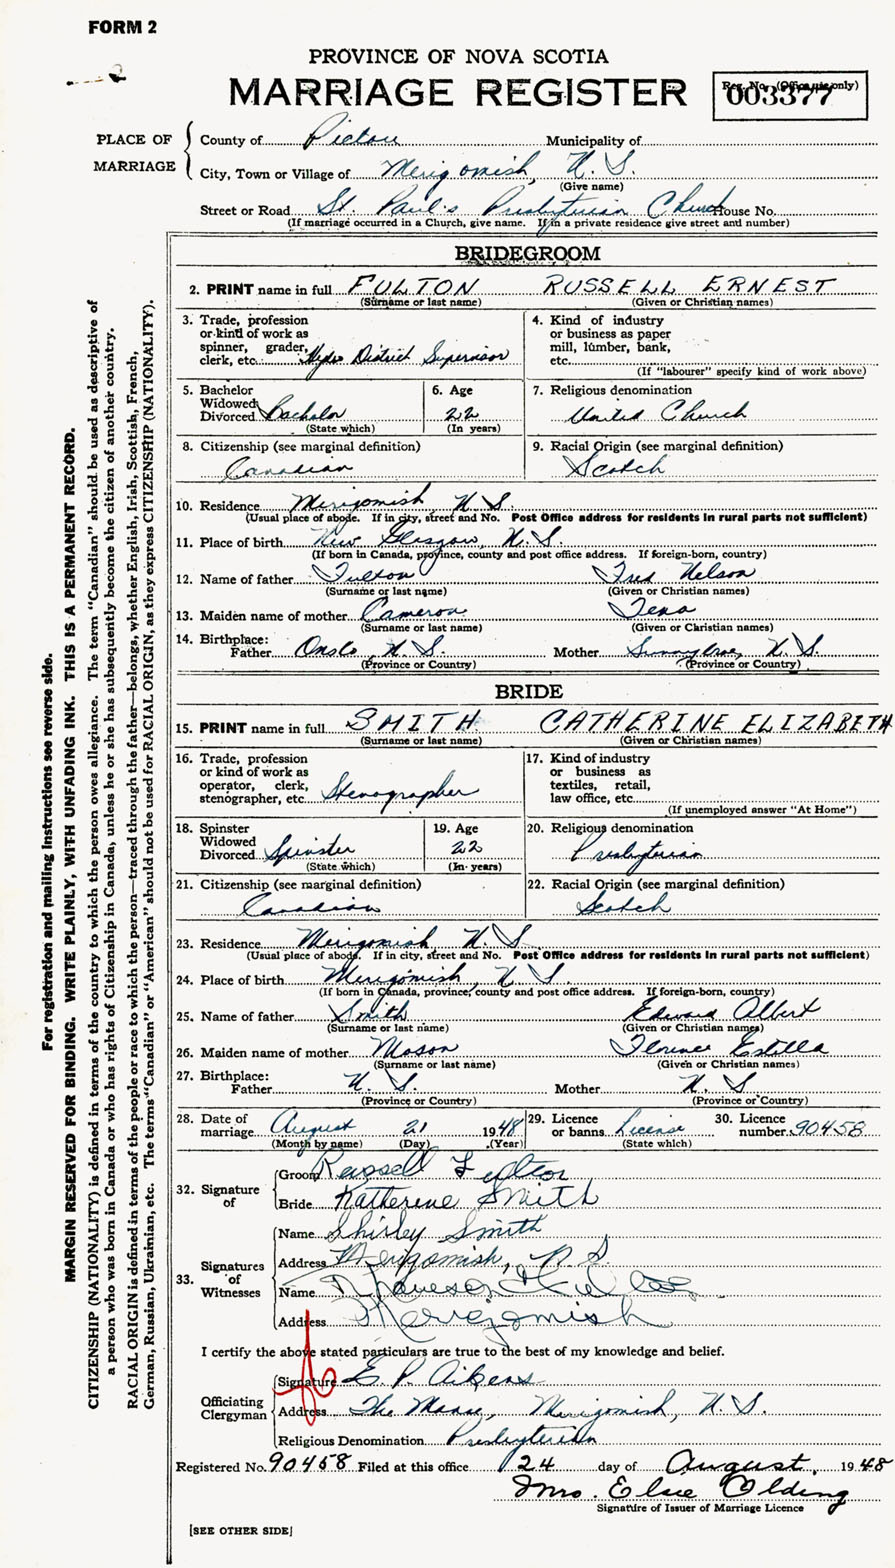 FORM 2
PROVINCE OF NOVA SCOTIA
MARRIAGE REGISTER
Reg. No. (Office use only)
003377
PLACE OF MARRIAGE
County of Pictou Municipality of
City, Town or Village of Merigomish, N.S.
(Give name)
Street or Road St. Paul's Presbyterian Church House No.
(If marriage occurred in a Church, give name. If in a private residence give street and number)
BRIDEGROOM
2. PRINT name in full FULTON RUSSELL ERNEST
(Surname or last name) (Given or Christian names)
3. Trade, profession or kind of work as spinner, grader, clerk, etc. Hydro District Supervisor
4. Kind of industry or business as paper mill, lumber, bank, etc.
(If "labourer" specify kind of work above)
5. Bachelor Widowed Divorced Bachelor
(State which)
6. Age 22
(In years)
7. Religious denomination
United Church
8. Citizenship (see marginal definition)
Canadian
9. Racial Origin (see marginal definition)
Scotch
10. Residence Merigomish N.S.
(Usual place of abode. If in city, street and No. Post Office address for residents in rural parts not sufficient)
11. Place of birth New Glasgow, N.S.
(If born in Canada, province, county and post office address. If foreign-born, country)
12. Name of father Fulton Fred Nelson
(Surname or last name) (Given or Christian names)
13. Maiden name of mother Cameron Tena
(Surname or last name) (Given or Christian names)
14. Birthplace:
Father Onslo, N.S. Mother Sunnybrae, N.S.
(Province or Country) (Province or Country)
BRIDE
15. PRINT name in full SMITH CATHERINE ELIZABETH
(Surname or last name) (Given or Christian names)
16. Trade, profession or kind of work as operator, clerk, stenographer, etc. Stenographer
17. Kind of industry or business as textiles, retail, law office, etc.
(If unemployed answer "At Home")
18. Spinster Widowed Divorced Spinster
(State which)
19. Age 22
(In years)
20. Religious denomination
Presbyterian
21. Citizenship (see marginal definition)
Canadian
22. Racial Origin (see marginal definition)
Scotch
23. Residence Merigomish, N.S.
(Usual place of abode. If in city, street and No. Post Office address for residents in rural parts not sufficient)
24. Place of birth Merigomish, N.S.
(If born in Canada, province, county and post office address. If foreign-born, country)
25. Name of father Smith Edward Albert
(Surname or last name) (Given or Christian names)
26. Maiden name of mother Mason Florence Estella
(Surname or last name) (Given or Christian names)
27. Birthplace:
Father N.S. Mother N.S
(Province or Country) (Province or Country)
28. Date of marriage August 21 1948
(Month by name) (Day) (Year)
29. Licence or banns License
(State which)
30. Licence number 90458
32. Signature of
Groom Russell Fulton
Bride Katherine Smith
33. Signatures of Witnesses
Name Shirley Smith
Address Merigomish, N.S.
Name Fulton
Address Merigomish
I certify the above stated particulars are true to the best of my knowledge and belief.
Officiating Clergyman
Signature E. P. Aikens
Address The Manse, Merigomish, N.S.
Religious Denomination Presbyterian
Registered No. 90458 Filed at this office 24 day of August, 1948
Mrs. Elsie Olding
Signature of Issuer of Marriage Licence
[SEE OTHER SIDE]
For registration and mailing instructions see reverse side.
MARGIN RESERVED FOR BINDING. WRITE PLAINLY, WITH UNFADING INK. THIS IS A PERMANENT RECORD.
CITIZENSHIP (NATIONALITY) is defined in terms of the country to which the person owes allegiance. The term "Canadian" should be used as descriptive of
a person who was born in Canada or who has rights of Citizenship in Canada, unless he or she has subsequently become the citizen of another country.
RACIAL ORIGIN is defined in terms of the people or race to which the person—traced through the father—belongs, whether English, Irish, Scottish, French,
German, Russian, Ukrainian, etc. The terms "Canadian" or "American" should not be used for RACIAL ORIGIN, as they express CITIZENSHIP (NATIONALITY).